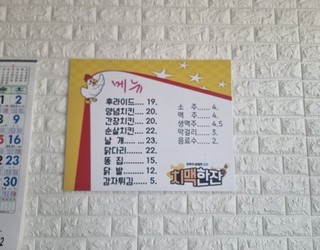 메뉴
후라이드.... 19.
양념치킨.... 20.
간장치킨.... 20.
순살치킨.... 22.
날 개..... 23.
닭다리...... 22.
똥 집...... 15.
닭 발...... 12.
감자튀김.... 5.
소 주...... 4.
맥 주...... 4.
생맥주...... 4.5
막걸리...... 3.
음료수...... 2.
치맥한잔